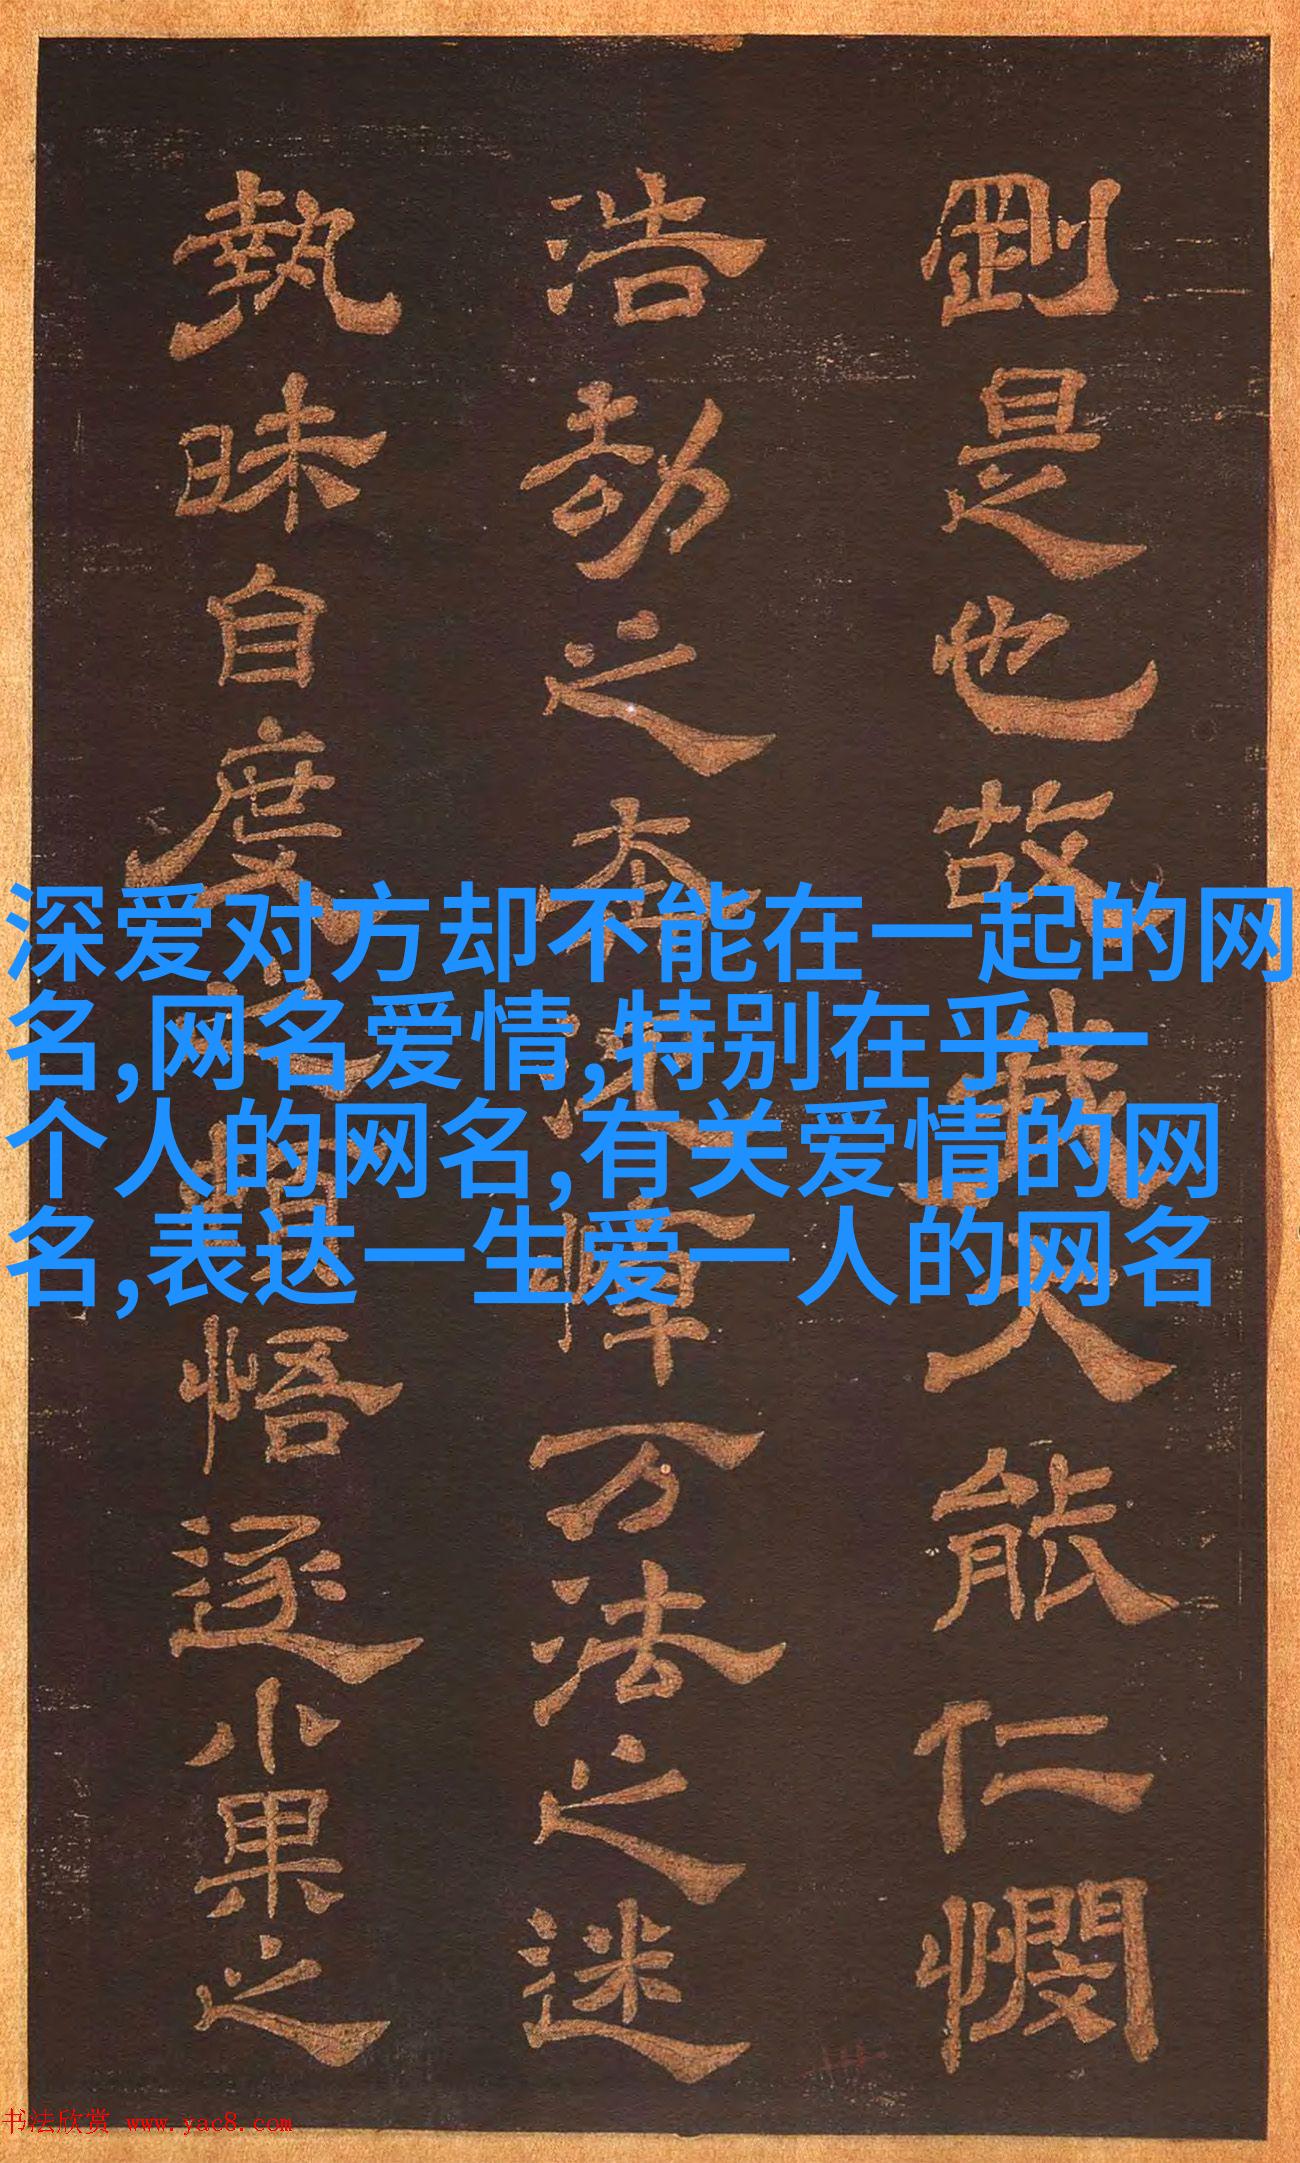 剛是也故我大能仁憫
浩劫之奔波悼万法之迷
執昧自度之權悟逐小果之
深爱对方却不能在一起的网
名,网名爱情,特别在乎一
个人的网名,有关爱情的网
名,表达一生爱一人的网名
书法欣赏 www.yac8.com